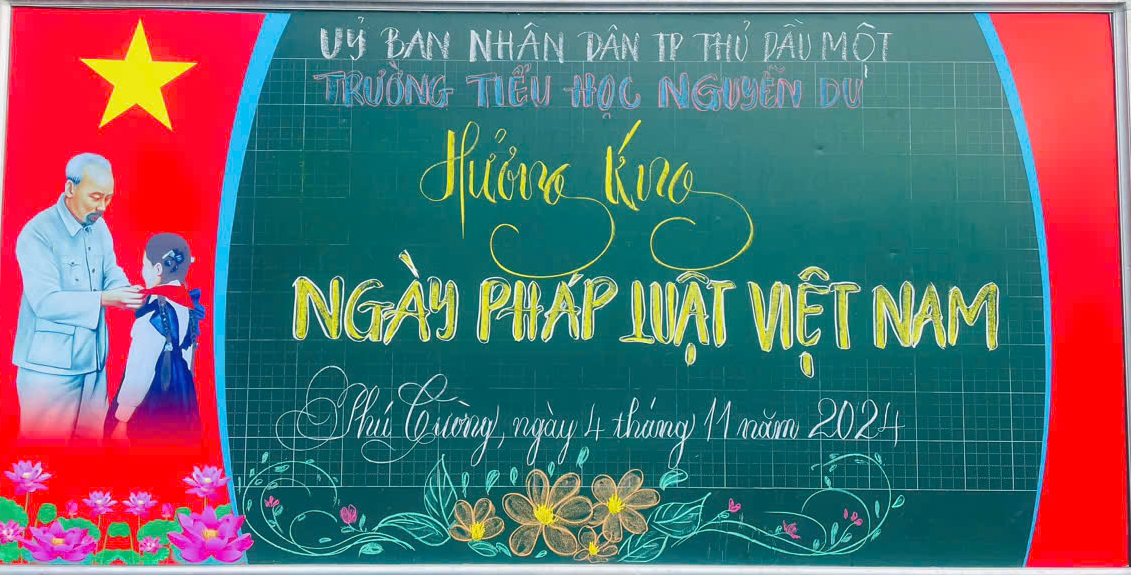 UỶ BAN NHÂN DÂN TP THỦ DẦU MỘT
TRƯỜNG TIỂU HỌC NGUYỄN DU
Hưởng Ứng
NGÀY PHÁP LUẬT VIỆT NAM
Phú Cường, ngày 4 tháng 11 năm 2024